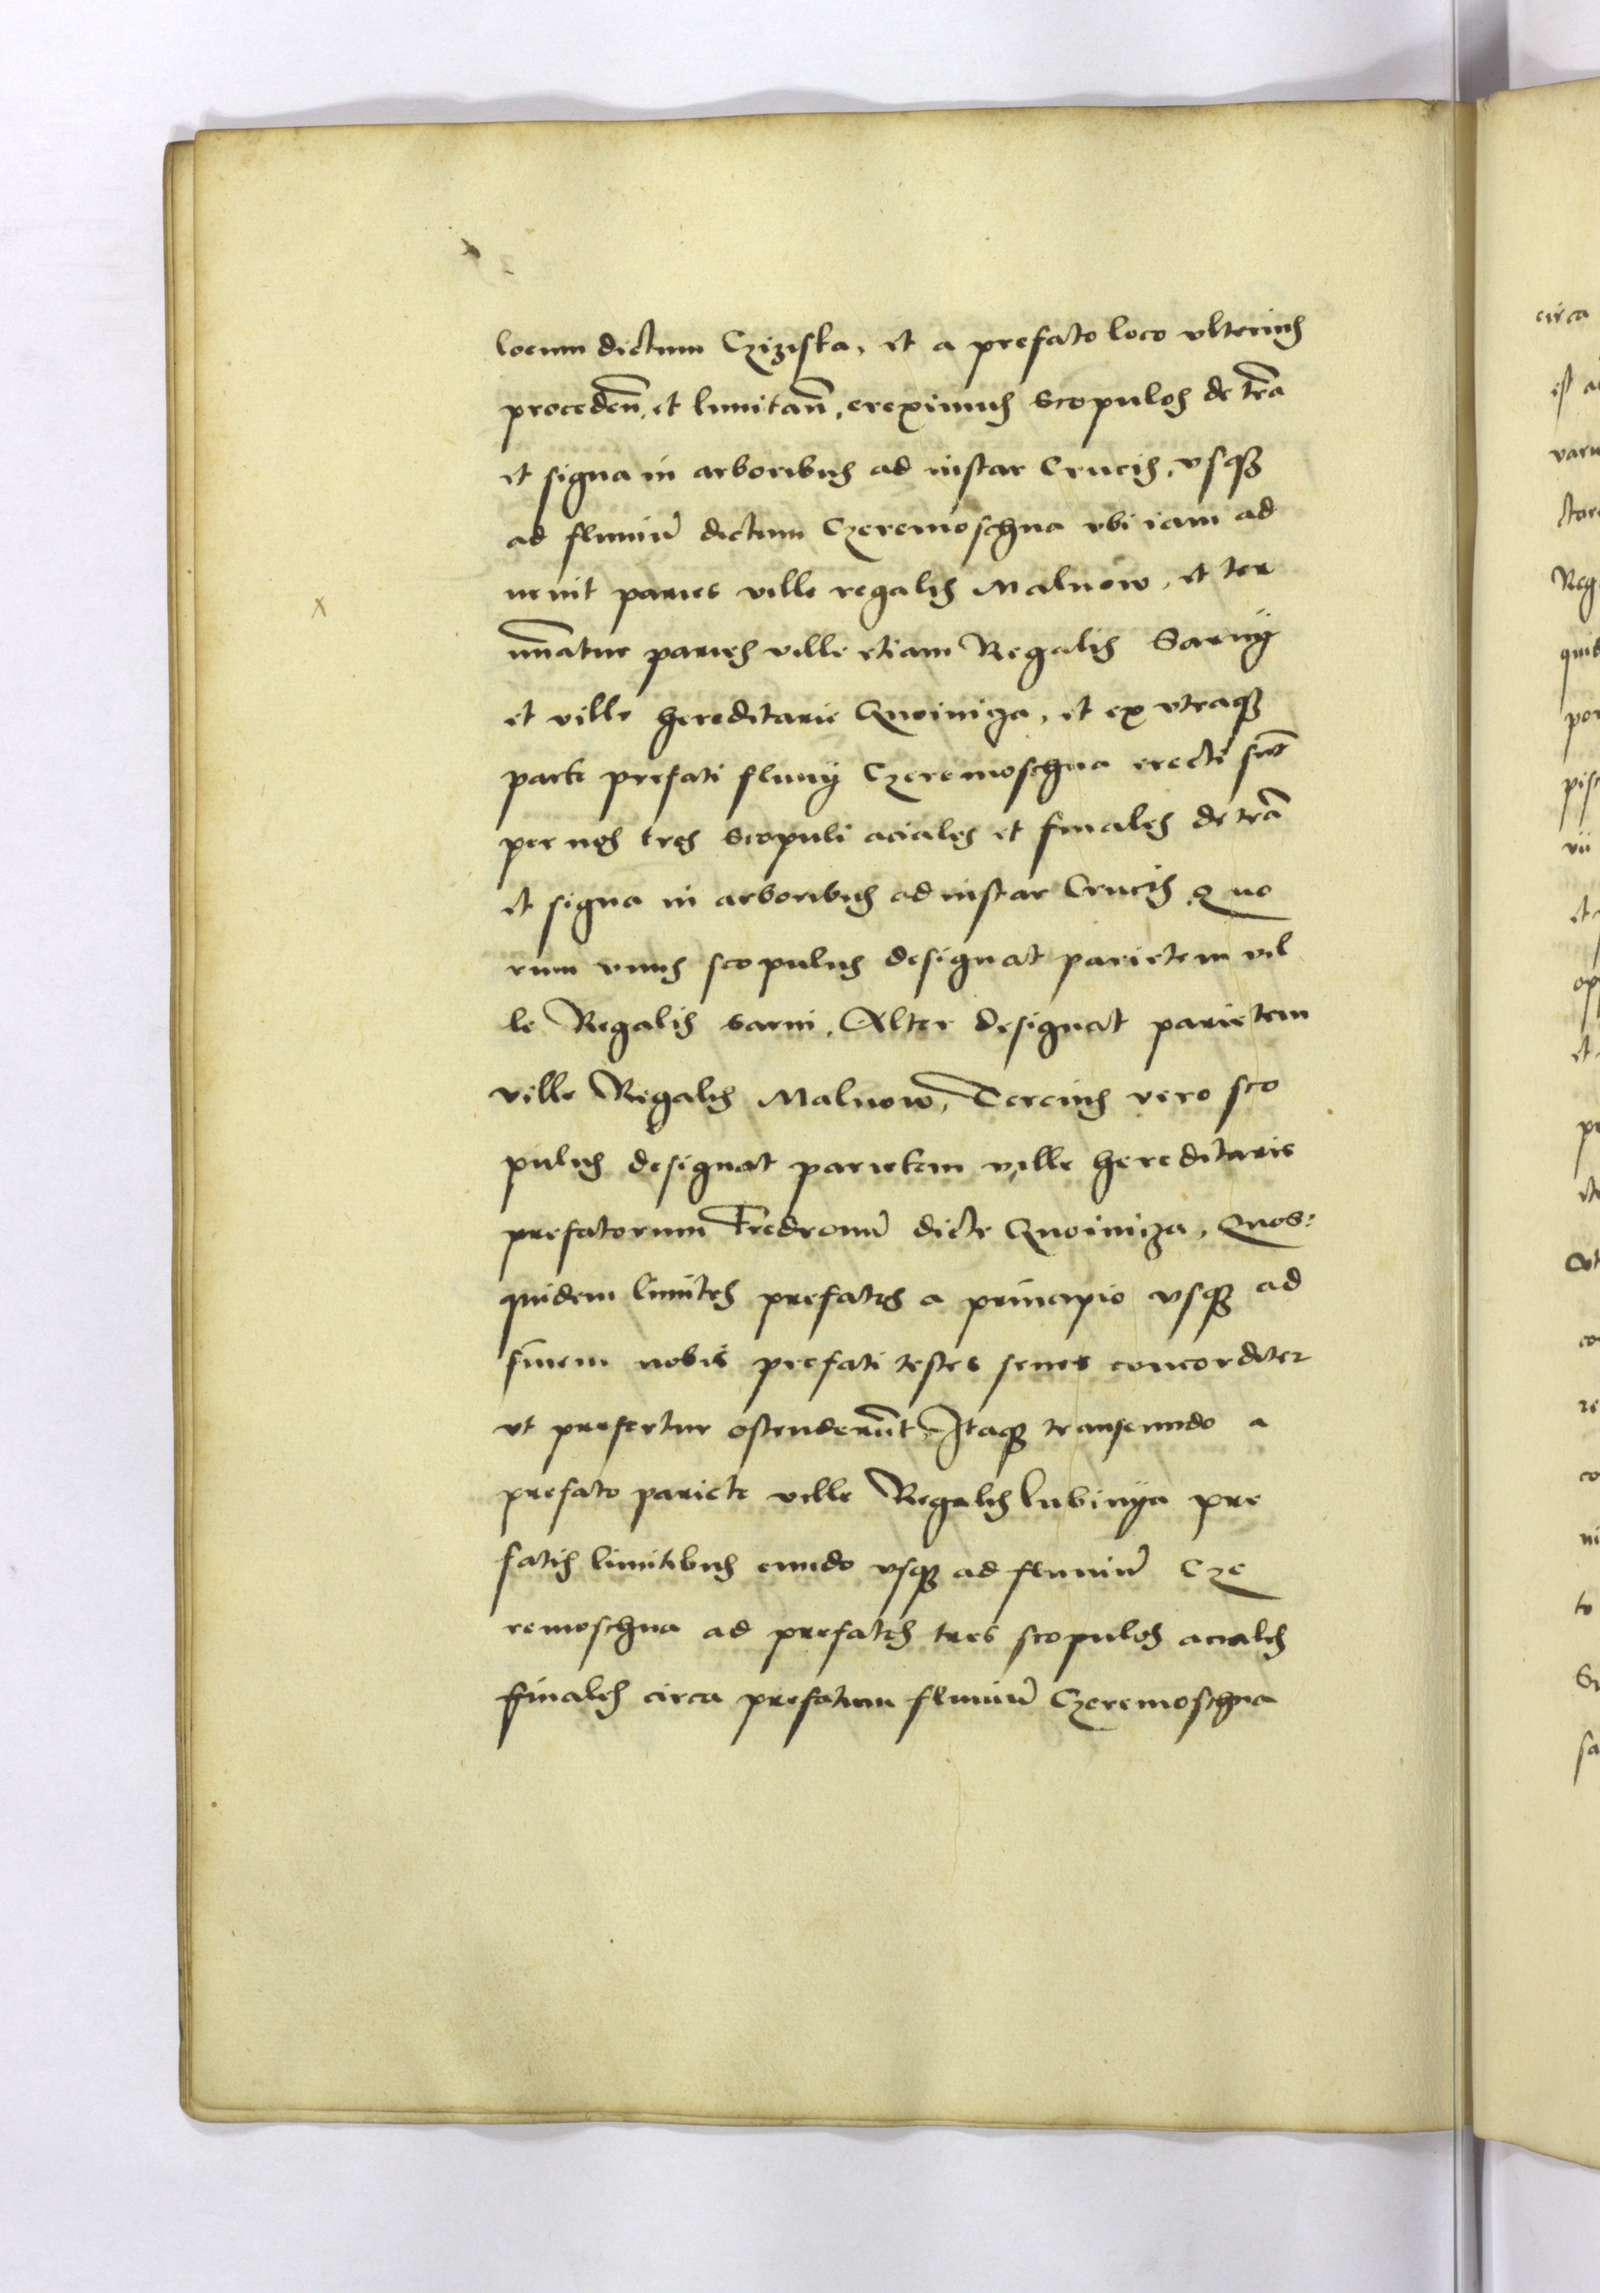 locum dictum Cziziska, et a prefato loco vlterius
proceden̅, et limitan̅, ereximus Scopulos de tr̅a
et signa in arboribus ad instar Crucis, vsq̨
ad fluuiu̅ dictum Czeremoschna vbi iam ad
uenit paries ville regalis Malnow, et ter
mi̅atur paries ville etiam Regalis Sarnÿ
et ville hereditarie Gnoiniza, et ex vtraq̨
parte prefati fluuÿ Czeremoschna erecti su̅t
per nos tres Scopuli aciales et finales de tr̅a
et signa in arboribus ad instar Crucis Quo
rum vnus scopulus designat parietem vil
le Regalis sarni, Alter designat parietem
ville Regalis Malnow, Tercius vero sco
pulus designat parietem ville hereditarie
prefatorum Fredronu̅ dicte Gnoiniza, Quos:
quidem limites prefatos a principio vsq̨ ad
finem nobis prefati testes senes concorditer
vt prefertur ostenderu̅t, Itaq̨ transeundo a
prefato pariete ville Regalis lubinya pre
fatis limitibus eundo vsq̨ ad fluuiu̅ Cze
remoschna ad prefatos tres scopulos aciales
ffinales circa prefatum fluuiu̅ Czeremoschna
circa